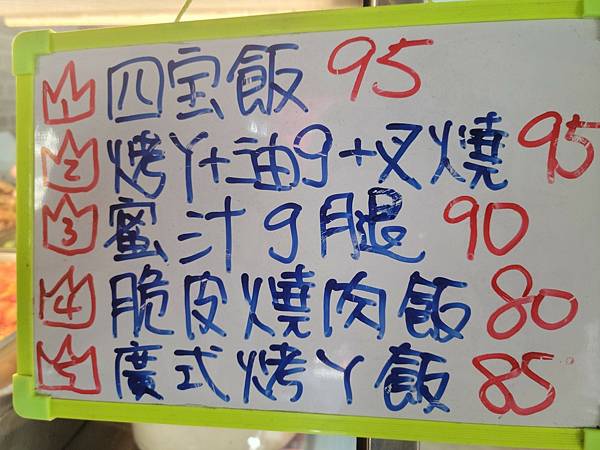 1 四宝飯 95
2 烤丫+油9+叉燒 95
3 蜜汁9腿 90
4 脆皮燒肉飯 80
5 廣式烤丫飯 85